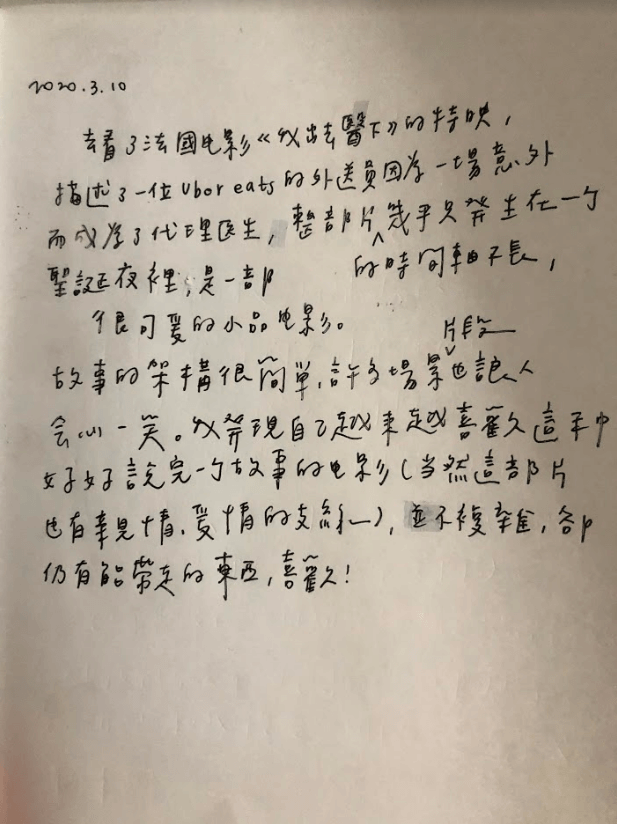 2020.3.10
去看了法國电影《我出去醫下》的特映，
描述了一位Uber eats的外送員因為一場意外
而成為了代理医生，整部片幾乎只發生在一个
的時間軸不長，
聖誕夜裡，是一部
很可愛的小品电影。
片段
故事的架構很簡單，許多場景也讓人
会心一笑。我發現自己越来越喜歡這种
好好說完一个故事的电影（当然這部片
也有親情、愛情的支線），並不複雜，卻
仍有能帶走的東西，喜歡！